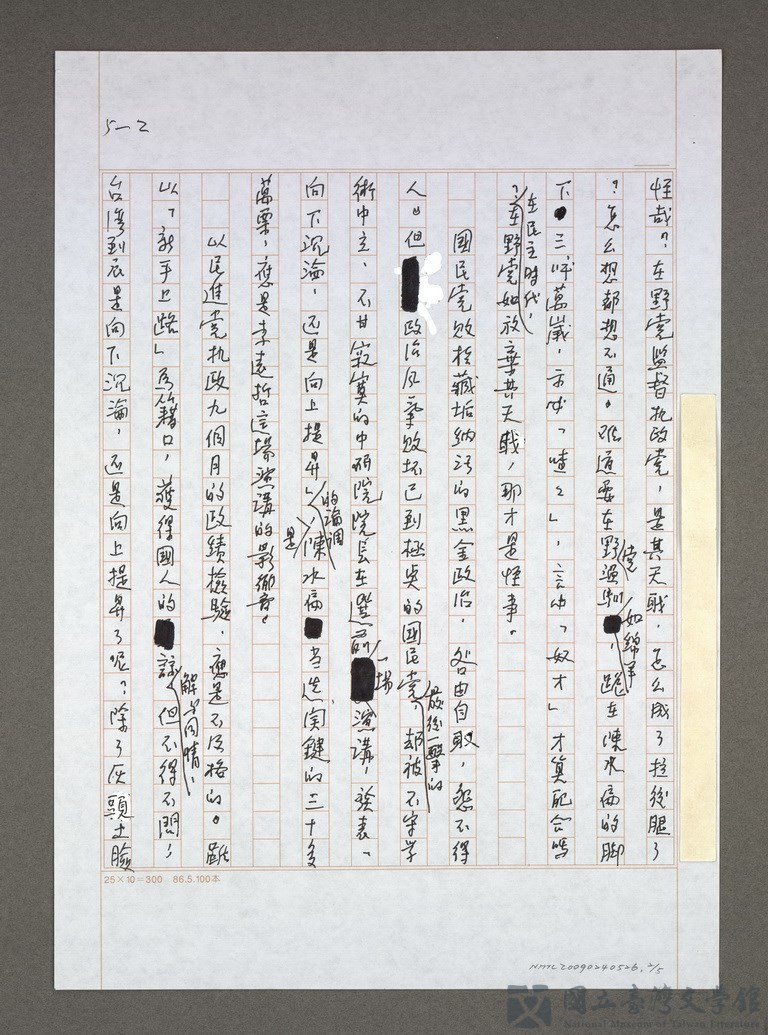 5-2
怪哉?,在野党監督执政党,是其天職,怎么成了拉後腿了
?怎么想都想不通。难道要在野党溫馴如綿羊,跪在陳水扁的脚
下三呼萬歲,亦呼「喳々」,言必「奴才」才算配合嗎
?在民主時代,在野党如放棄其天職,那才是怪事。
國民党败於藏垢納污的黑金政治,咎由自取,怨不得
人。但政治风氣败坏已到極矣的國民党,却被最後一擊的不守学
術中立、不甘寂寞的中研院院長在選前一場演講,発表「
向下沉淪,还是向上提昇」的論調,是陳水扁当选関鍵的三十多
萬票,應是李遠哲這場演講的影响。
以民進党执政九個月的政績檢驗,應是不及格的。雖
以「新手上路」為籍口,獲得國人的諒解与同情,但不得不問,
台灣到底是向下沉淪,还是向上提昇了呢?除了灰頭土臉
25×10=300 86.5.100本
NMTL20090240526, 2/5
國立臺灣文學館
National Museum of Taiwan Literature